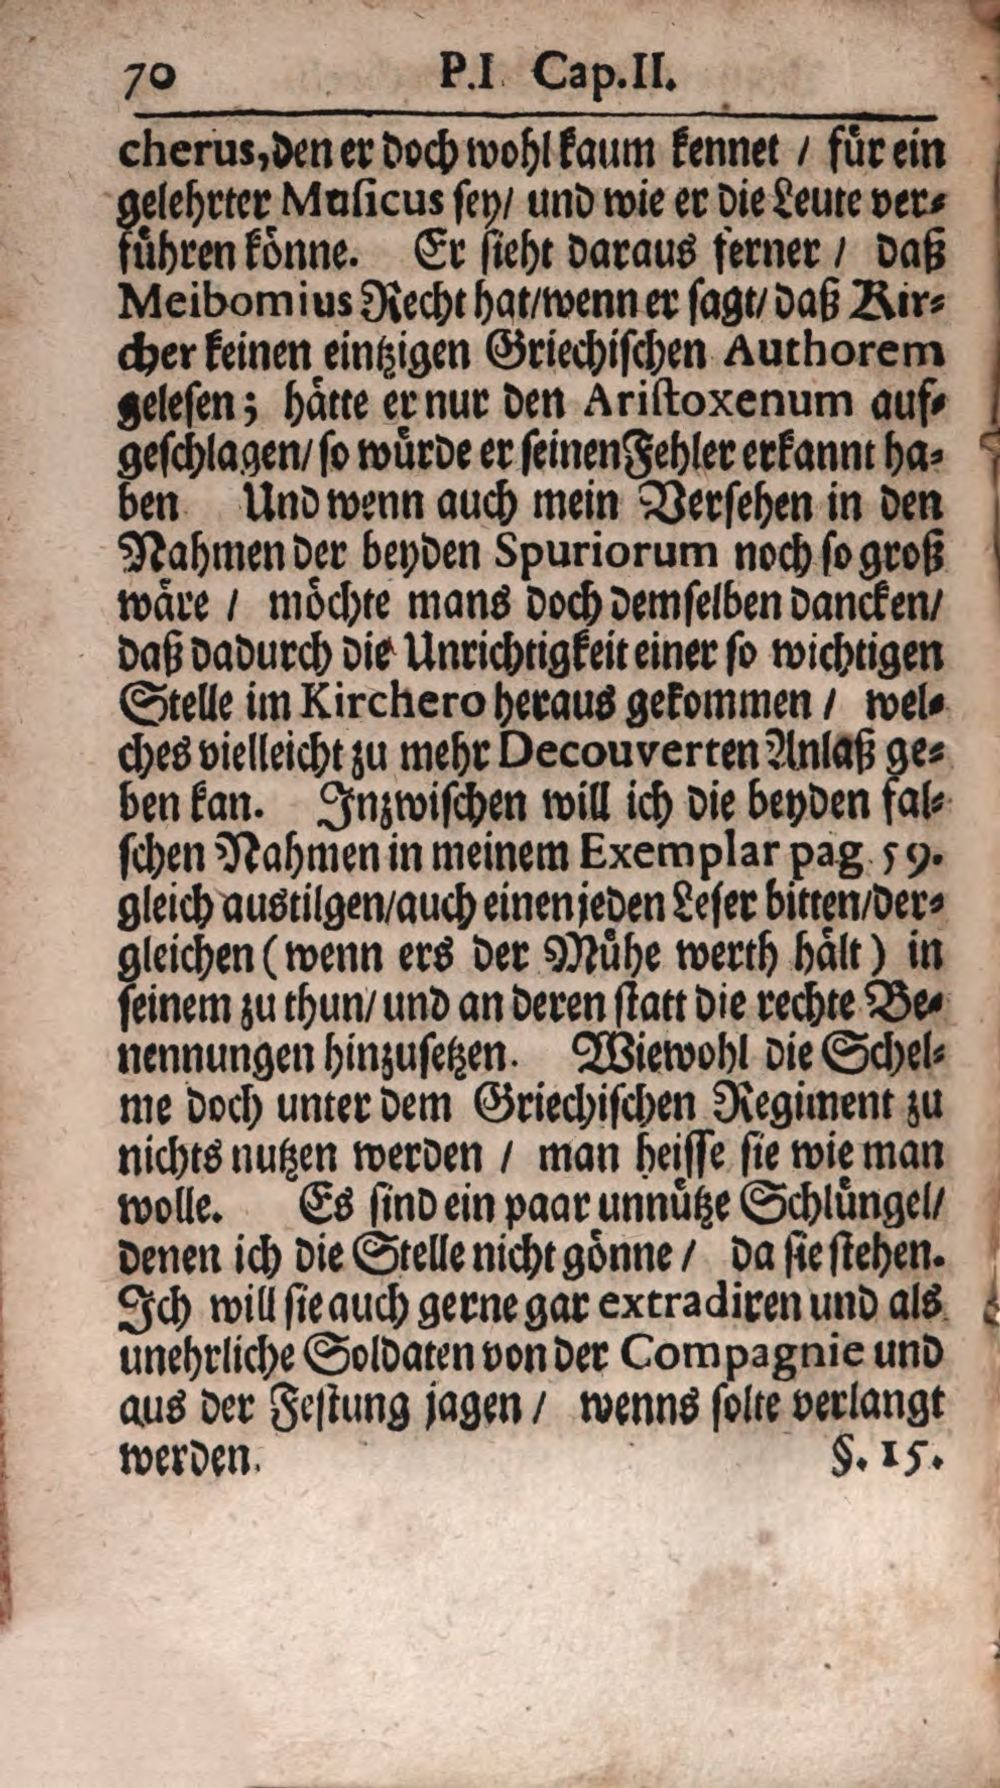 70 P.I Cap.II.
cherus, den er doch wohl kaum kennet / für ein
gelehrter Musicus sey / und wie er die Leute ver-
führen könne. Er sieht daraus ferner / daß
Meibomius Recht hat / wenn er sagt / daß Kir-
cher keinen eintzigen Griechischen Authorem
gelesen; hätte er nur den Aristoxenum auf-
geschlagen / so würde er seinen Fehler erkannt ha-
ben Und wenn auch mein Versehen in den
Nahmen der beyden Spuriorum noch so groß
wäre / möchte mans doch demselben dancken /
daß dadurch die Unrichtigkeit einer so wichtigen
Stelle im Kirchero heraus gekommen / wel-
ches vielleicht zu mehr Decouverten Anlaß ge-
ben kan. Inzwischen will ich die beyden fal-
schen Nahmen in meinem Exemplar pag. 59.
gleich austilgen / auch einen jeden Leser bitten / der-
gleichen (wenn ers der Mühe werth hält) in
seinem zu thun / und an deren statt die rechte Be-
nennungen hinzusetzen. Wiewohl die Schel-
me doch unter dem Griechischen Regiment zu
nichts nutzen werden / man heisse sie wie man
wolle. Es sind ein paar unnütze Schlüngel /
denen ich die Stelle nicht gönne / da sie stehen.
Ich will sie auch gerne gar extradiren und als
unehrliche Soldaten von der Compagnie und
aus der Festung jagen / wenns solte verlangt
werden. §. 15.